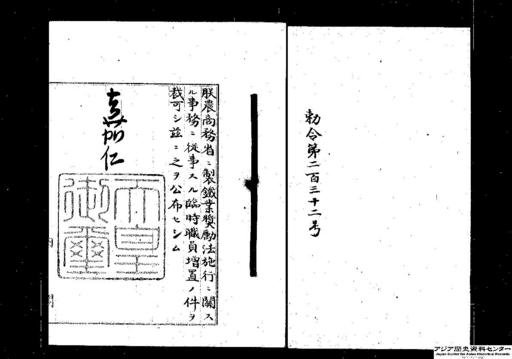 勅令第二百三十二号
朕農商務省ニ製鐵業奨勵法施行ニ關ス
ル事務ニ從事スル臨時職員増置ノ件ヲ
裁可シ茲ニ之ヲ公布セシム
嘉仁
天皇御璽
アジア歴史資料センター
Japan Center for Asian Historical Records